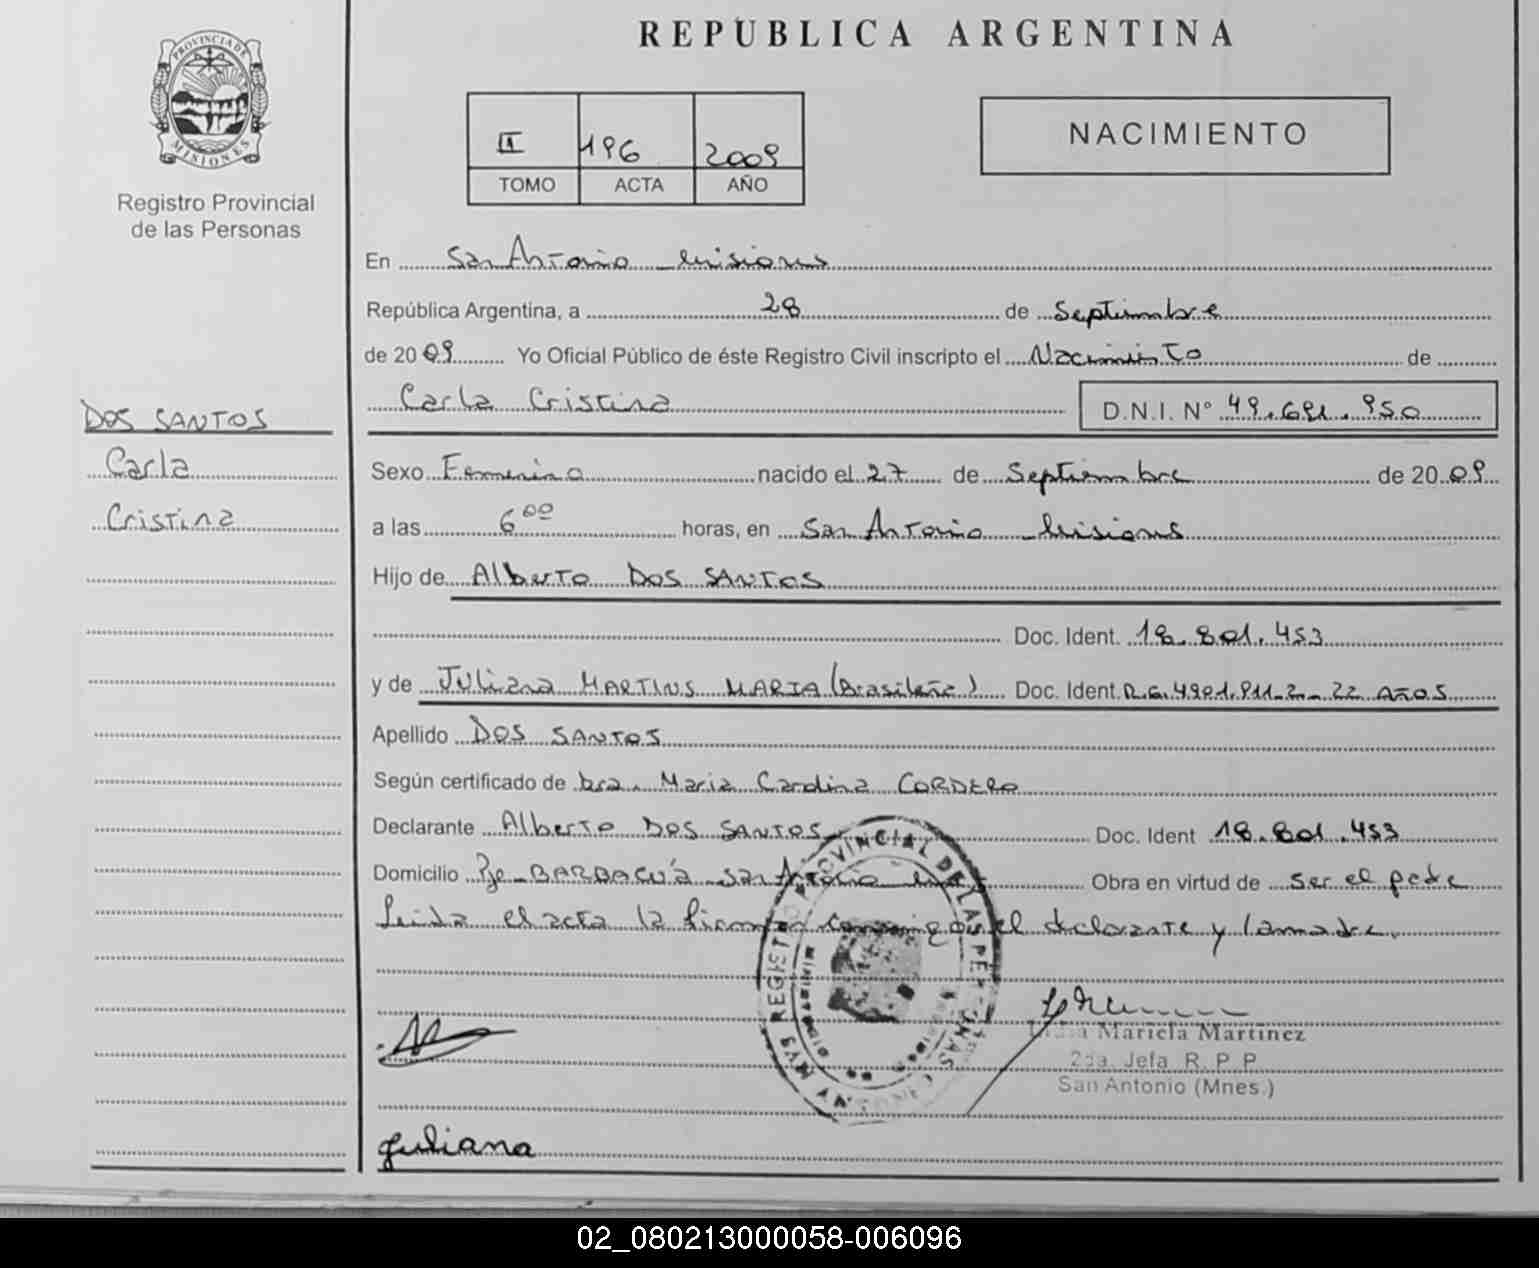 REPUBLICA ARGENTINA
PROVINCIA DE MISIONES
Registro Provincial
de las Personas
II 196 2009
TOMO ACTA AÑO
NACIMIENTO
En San Antonio _ Misiones
República Argentina, a 28 de Septiembre
de 2009 Yo Oficial Público de éste Registro Civil inscripto el Nacimiento de
Carla Cristina D.N.I. N° 49.691.950
DOS SANTOS
Carla
Cristina
Sexo Femenino nacido el 27 de Septiembre de 2009
a las 6 00 horas, en San Antonio _ Misiones
Hijo de Alberto DOS SANTOS
Doc. Ident. 18.801.453
y de Juliana MARTINS MARIA (Brasileña) Doc. Ident. R.G. 4901.911-2_ 22 AÑOS
Apellido DOS SANTOS
Según certificado de Dra. Maria Carolina CORDERO
Declarante Alberto DOS SANTOS Doc. Ident 18.801.453
Domicilio Pje_ BARBACUÁ _ San Antonio Obra en virtud de ser el padre
Leída el acta la firman conmigo el declarante y la madre.
REGISTRO PROVINCIAL DE LAS PERSONAS
Mariela Martinez
2da. Jefa R. P. P.
San Antonio (Mnes.)
Juliana
02_080213000058-006096